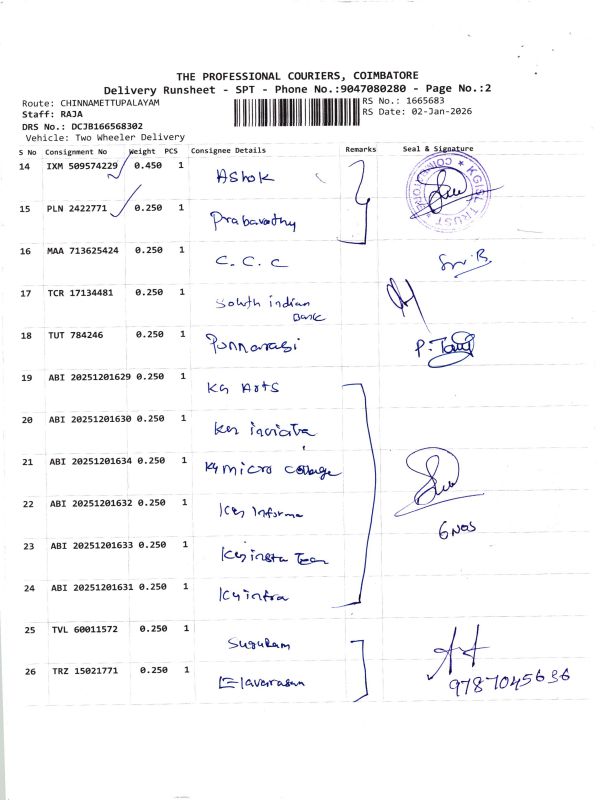 THE PROFESSIONAL COURIERS, COIMBATORE
Delivery Runsheet - SPT - Phone No.:9047080280 - Page No.:2
Route: CHINNAMETTUPALAYAM RS No.: 1665683
Staff: RAJA RS Date: 02-Jan-2026
DRS No.: DCJB166568302
Vehicle: Two Wheeler Delivery
S No Consignment No Weight PCS Consignee Details Remarks Seal & Signature
14 IXM 509574229 0.450 1 Ashok
15 PLN 2422771 0.250 1 Prabavathy
16 MAA 713625424 0.250 1 C. C. C
17 TCR 17134481 0.250 1 South indian
Bank
18 TUT 784246 0.250 1 Ponnarasi
19 ABI 20251201629 0.250 1 KG Arts
20 ABI 20251201630 0.250 1 KG
21 ABI 20251201634 0.250 1 KG micro college
22 ABI 20251201632 0.250 1 KG Informa
6 NOS
23 ABI 20251201633 0.250 1 KG insta Team
24 ABI 20251201631 0.250 1 KG infra
25 TVL 60011572 0.250 1 Suguram
26 TRZ 15021771 0.250 1 Elavarasan
9787045636